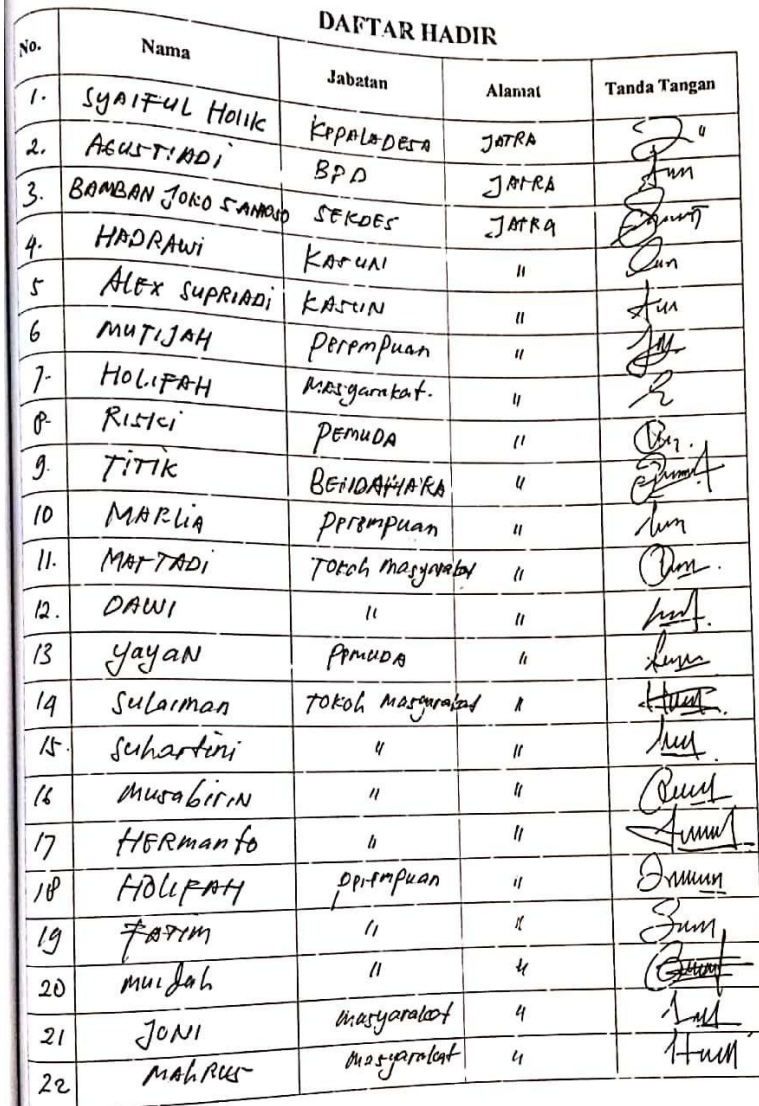 DAFTAR HADIR
No. Nama Jabatan Alamat Tanda Tangan
1. SYAIFUL HOLIK KEPALA DESA JATRA
2. AGUSTIADI BPD JATRA
3. BAMBAN JOKO SANTOSO SEKDES JATRA
4. HADRAWI KASUN "
5 ALEX SUPRIADI KASUN "
6 MUTIJAH Perempuan "
7. HOLIFAH Masyarakat. "
8. RISKI PEMUDA "
9. TITIK BENDAHARA "
10 MARLIA Perempuan "
11. MATTADI TOKOH Masyarakat "
12. DAWI " "
13 YAYAN PEMUDA "
14 Sulaiman TOKOH Masyarakat "
15. Suhartini " "
16 Musabirin " "
17 HERmanto " "
18 HOLIFAH perempuan "
19 FATIM " "
20 " "
21 JONI masyarakat "
22 MAHRUS masyarakat "